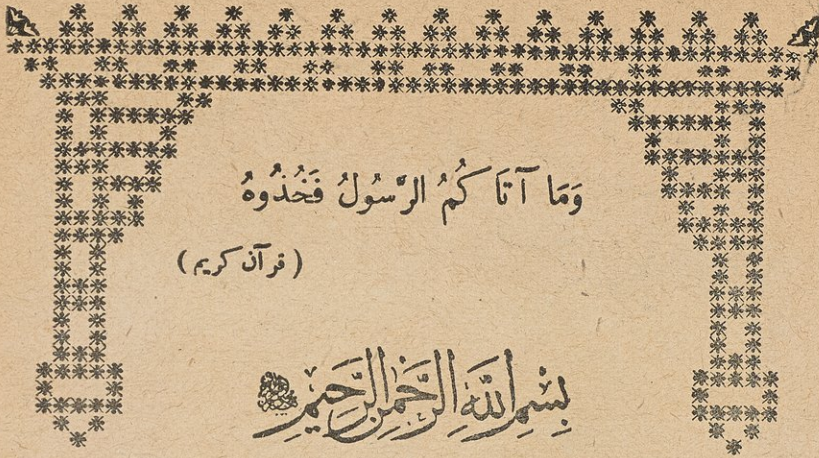 وَمَا آتَاكُمُ الرَّسُولُ فَخُذُوهُ
( قرآن كريم )
بِسْمِ اللَّهِ الرَّحْمَنِ الرَّحِيمِ